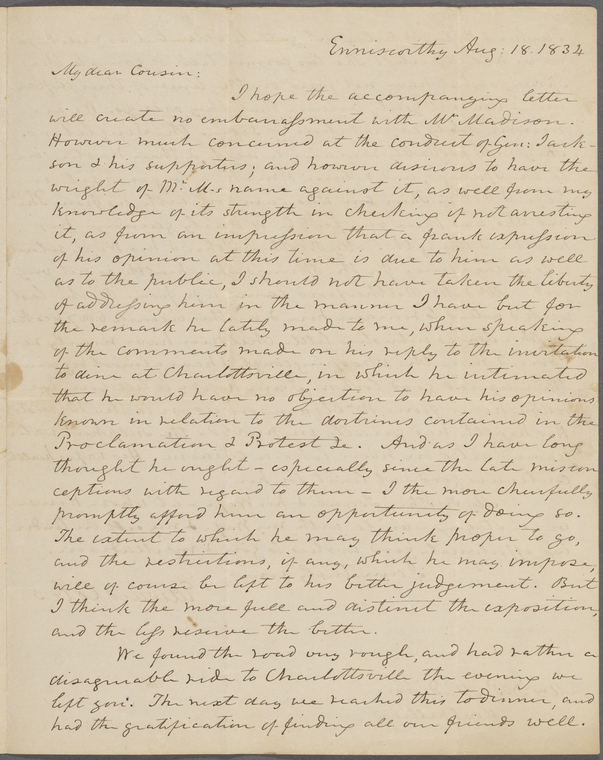 Enniscorthy Aug: 18. 1834
My dear Cousin:
I hope the accompanging letter
will create no embarrassment with Mr Madison.
However much concerned at the conduct of Gen: Jack-
son & his supporters; and however desirous to have the
weight of Mr. M.s name against it, as well from my
knowledge of its strength in checking if not arresting
it, as from an impression that a frank expression
of his opinion at this time is due to him as well
as to the public, I should not have taken the liberty
of addressing him in the manner I have but for
the remark he lately made to me, when speaking
of the comments made on his reply to the invitation
to dine at Charlottsville, in which he intimated
that he would have no objection to have his opinions
known in relation to the doctrines contained in the
Proclamation & Protest &c. And as I have long
thought he ought - especially since the late miscon
ceptions with regard to them - I the more cheerfully
promptly afford him an opportunity of doing so.
The extent to which he may think proper to go,
and the restrictions, if any, which he may impose,
will of course be left to his better judgement. But
I think the more full and distinct the exposition,
and the less reserve the better.
We found the road very rough, and had rather a
disagreeable ride to Charlottsville the evening we
left you. The next day we reached this to dinner, and
had the gratification of finding all our friends well.